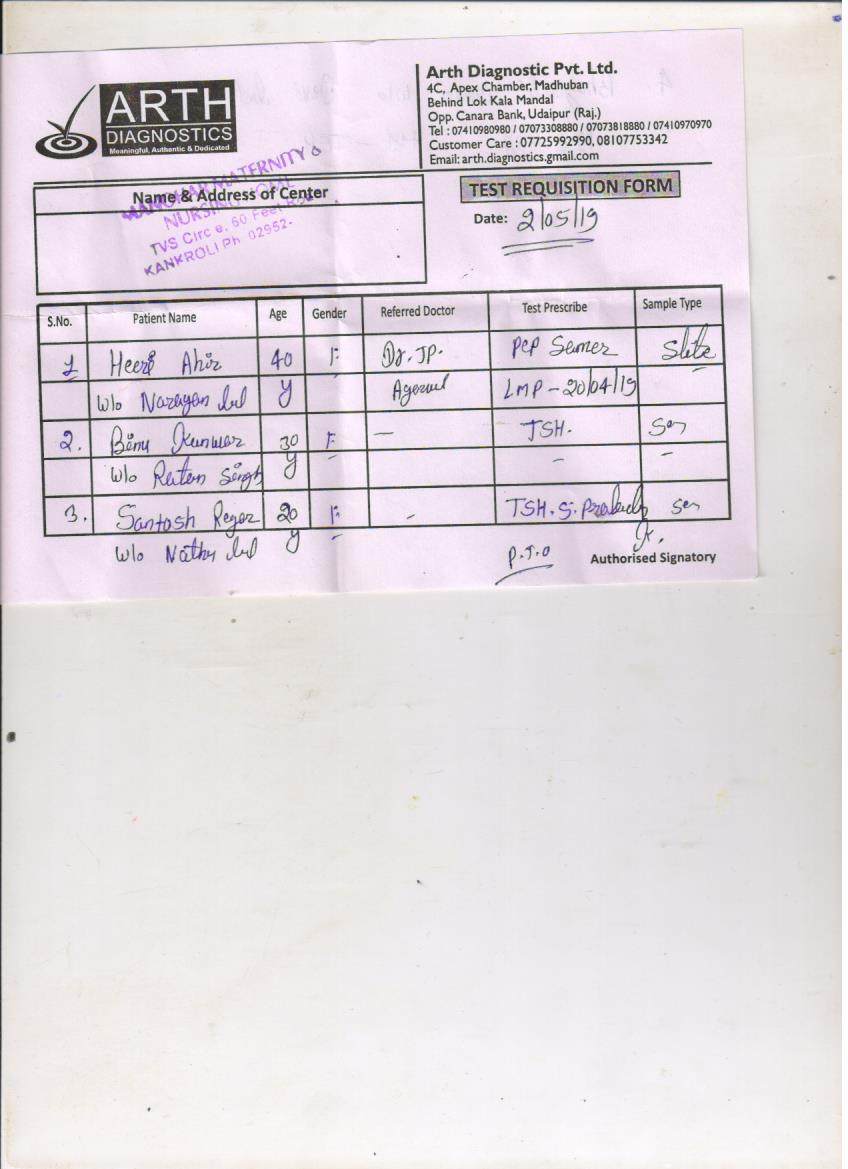 ARTH
DIAGNOSTICS
Meaningful, Authentic & Dedicated
Arth Diagnostic Pvt. Ltd.
4C, Apex Chamber, Madhuban
Behind Lok Kala Mandal
Opp. Canara Bank, Udaipur (Raj.)
Tel : 07410980980 / 07073308880 / 07073818880 / 07410970970
Customer Care : 07725992990, 08107753342
Email: arth.diagnostics.gmail.com
Name & Address of Center
MATERNITY
NURSING
TVS Circ e, 60 Feet
KANKROLI Ph 02952-
TEST REQUISITION FORM
Date: 2/05/19
S.No. Patient Name Age Gender Referred Doctor Test Prescribe Sample Type
1 Heeri Ahir 40 F Dr. JP. PCP Semer
W/o Narayan lal y Agarwal LMP - 20/04/19
2. Kunwar 30 F — TSH. Ser
W/o Ratan Singh y - - -
3. Santosh Regar 20 F - TSH. S. Ser
W/o Nathu lal y -
P.T.O
Authorised Signatory